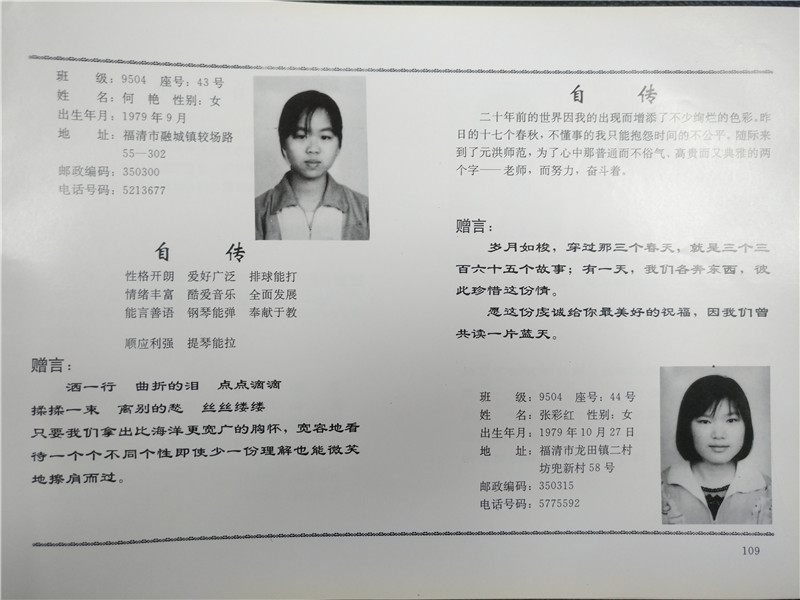 班　　级：9504　座号：43号
姓　　名：何　艳　性别：女
出生年月：1979年9月
地　　址：福清市融城镇较场路
55—302
邮政编码：350300
电话号码：5213677
自　　传
性格开朗　爱好广泛　排球能打
情绪丰富　酷爱音乐　全面发展
能言善语　钢琴能弹　奉献于教
顺应利强　提琴能拉
赠言：
洒一行　曲折的泪　点点滴滴
揉揉一束　离别的愁　丝丝缕缕
只要我们拿出比海洋更宽广的胸怀，宽容地看
待一个个不同个性即使少一份理解也能微笑
地擦肩而过。
自　　传
二十年前的世界因我的出现而增添了不少绚烂的色彩。昨
日的十七个春秋，不懂事的我只能抱怨时间的不公平。随际来
到了元洪师范，为了心中那普通而不俗气、高贵而又典雅的两
个字——老师，而努力，奋斗着。
赠言：
岁月如梭，穿过那三个春天，就是三个三
百六十五个故事；有一天，我们各奔东西，彼
此珍惜这份情。
愿这份虔诚给你最美好的祝福，因我们曾
共读一片蓝天。
班　　级：9504　座号：44号
姓　　名：张彩红　性别：女
出生年月：1979年10月27日
地　　址：福清市龙田镇二村
坊兜新村58号
邮政编码：350315
电话号码：5775592
109